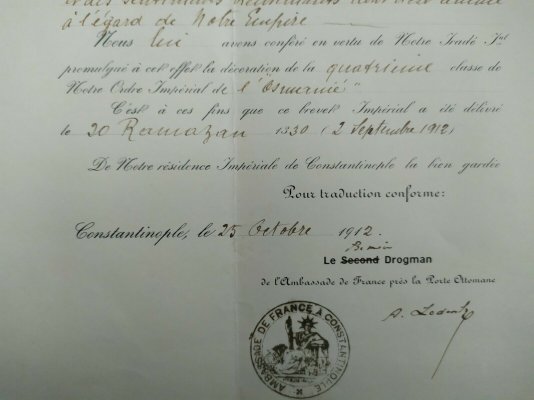 à l'égard de Notre Empire
Nous lui avons conféré en vertu de Notre Iradé Ial
promulgué à cet effet la décoration de la quatrième classe de
Notre Ordre Impérial de l'"Osmanié"
C'est à ces fins que ce brevet Impérial a été délivré
le 20 Ramazan 1330 (2 Septembre 1912)
De Notre résidence Impériale de Constantinople la bien gardée
Pour traduction conforme:
Constantinople, le 25 Octobre 1912.
Le Second Drogman
de l'Ambassade de France près la Porte Ottomane
A.
AMBASSADE DE FRANCE A CONSTANTINOPLE